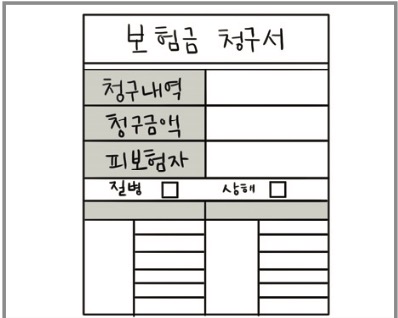 보험금 청구서
청구내역
청구금액
피보험자
질병 □ 상해 □